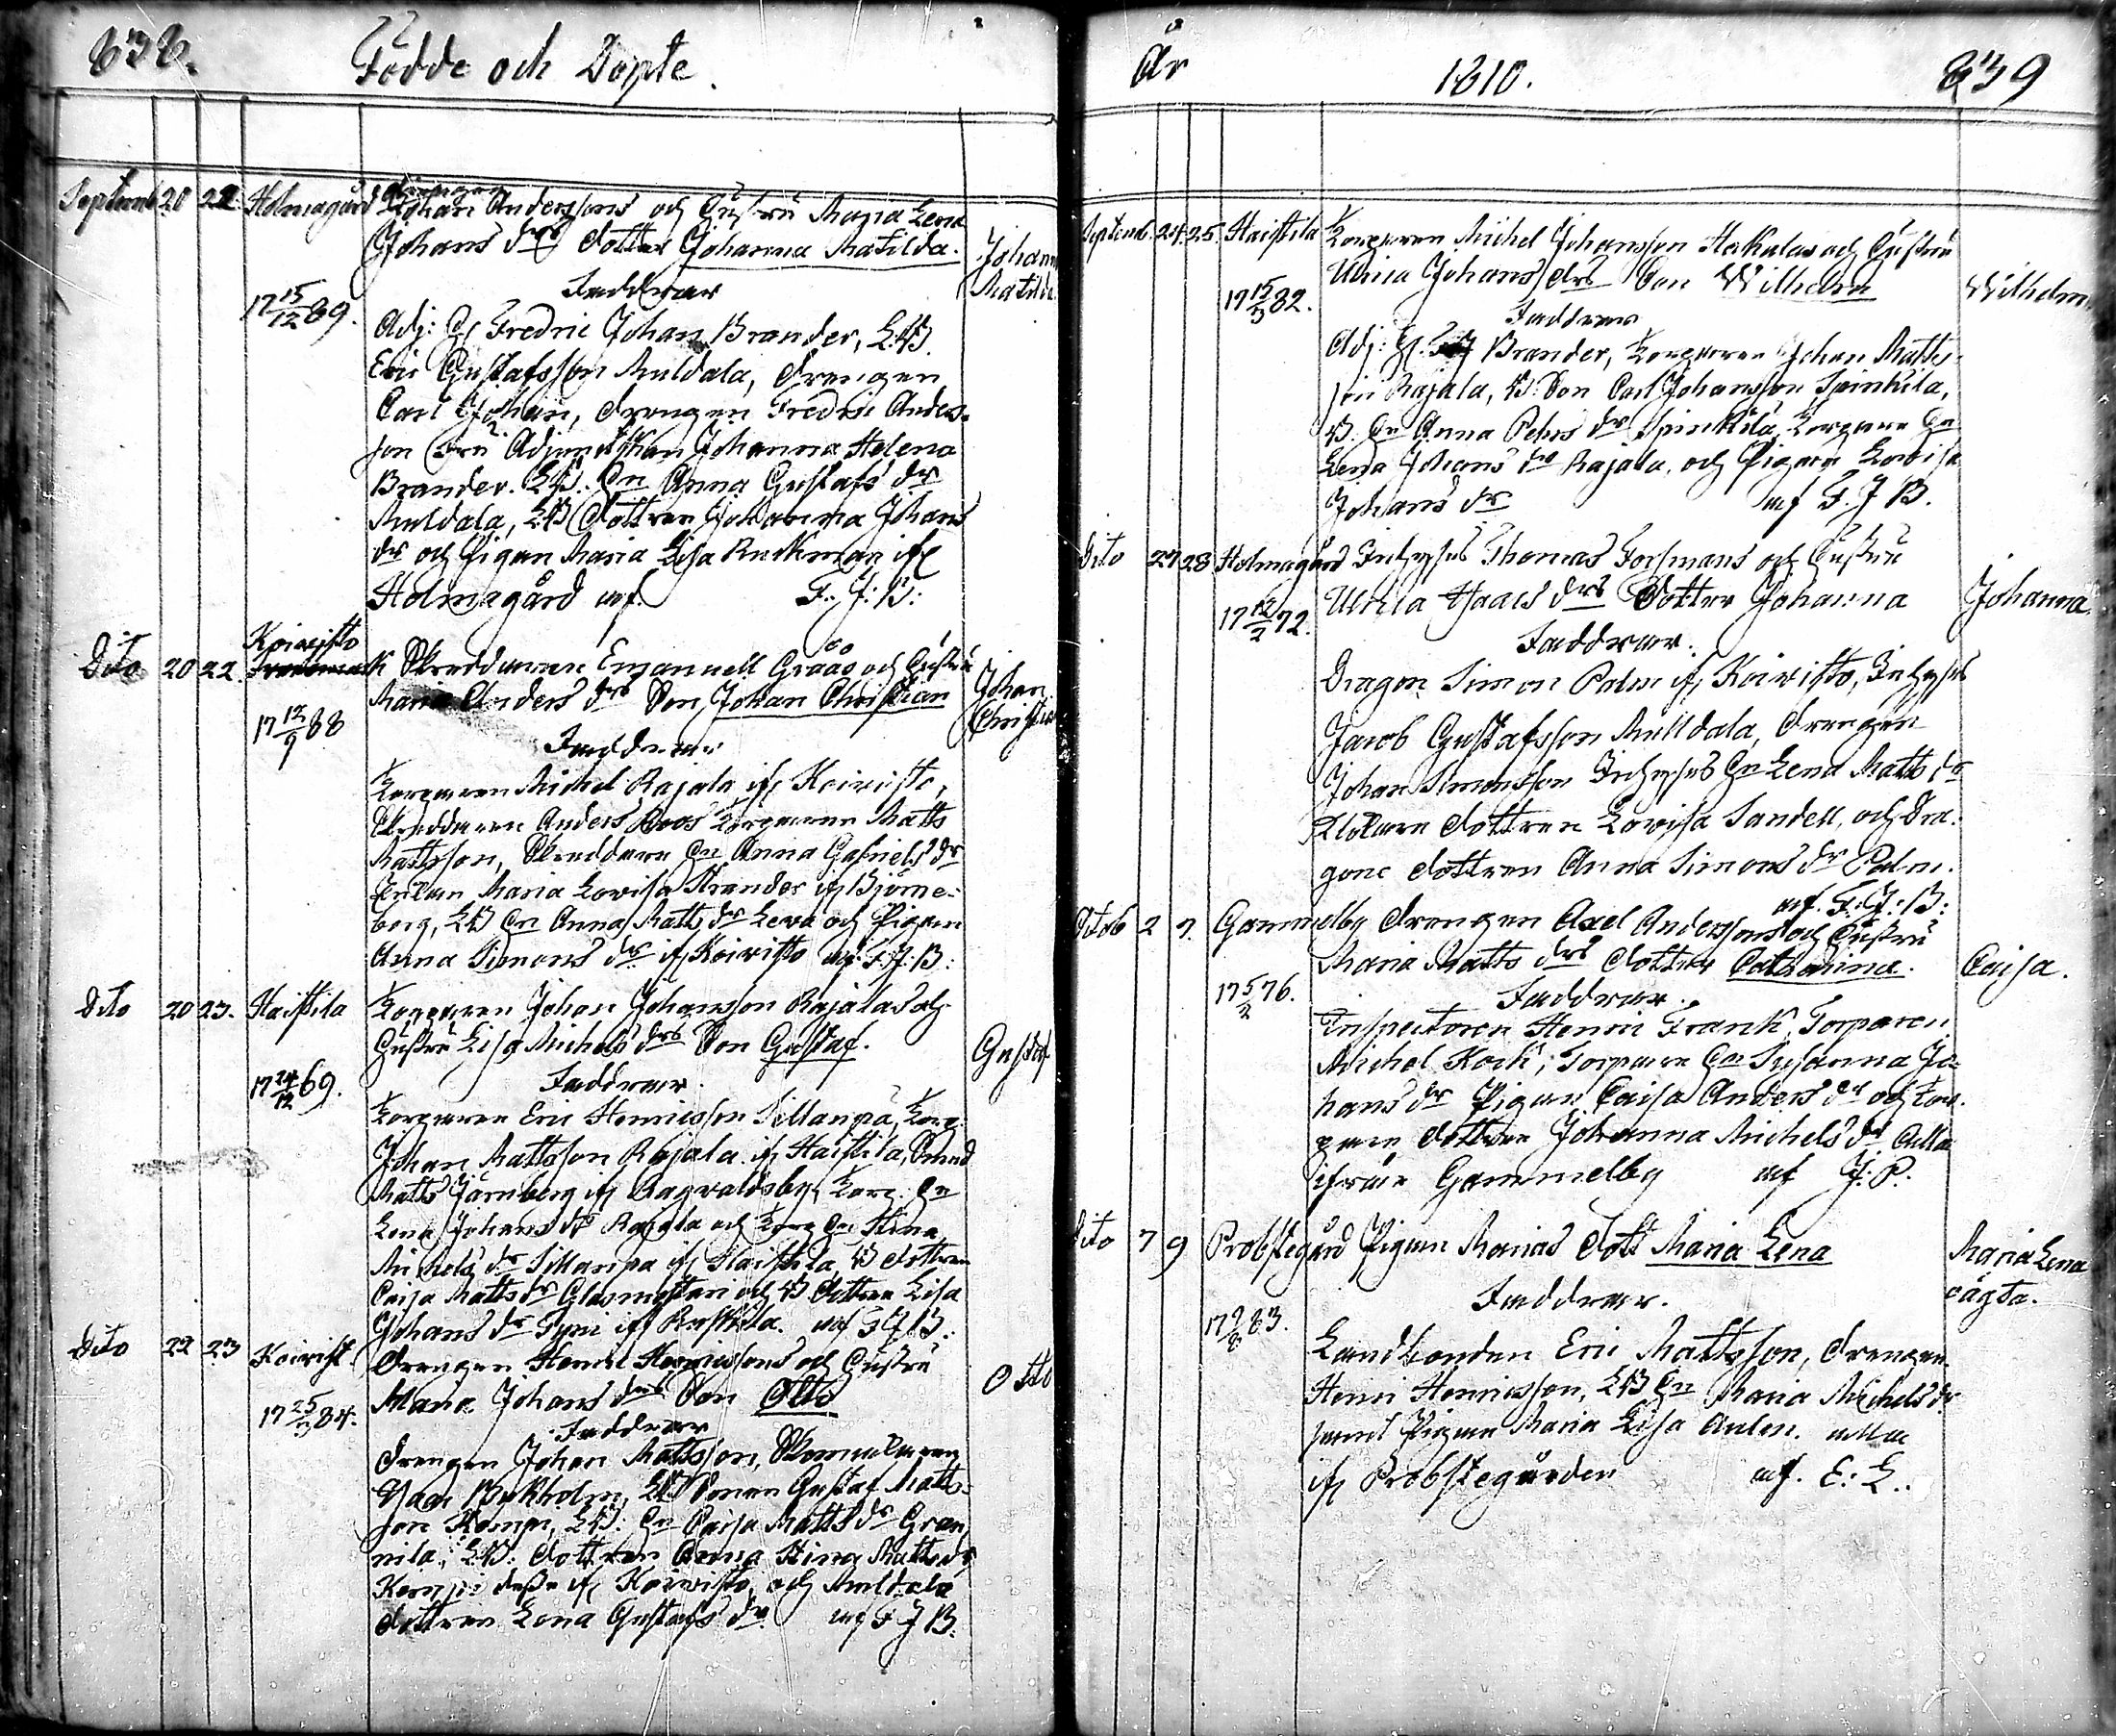 838.
Födde och Döpte.
Septemb 20 22 Holmagård drengen
Johan Anderssons och Hustru Maja Lena
Johans drs dotter Johanna Matilda.
Johanna
Matilda
Faddrar
17 15/12 89.
Adj: H Fredric Johan Brander, LB.
Eric Gustafsson Muldala, drengen
Carl Johan, drengen Fredric Anders-
son Fru Adjunktskan Johanna Helena
Brander. LB: Hn Anna Gustafs dr
Muldala, LB dottren Johanna Johans
dr och Pigan Maria Lisa Ruckman ifr
Holmagård af. F: J: B:
Koivisto
Dito 20 22. Skreddaren Emanuell Graas och Hustru
Maria Anders drs Son Johan Christian
Johan
Christian
17 12/9 88
Faddrar
Torparen Michel Rajala ifr Koivisto,
Skreddaren Anders Roos Torparen Matts
Mattsson, Skreddare Hn Anna Gabriels dr
Enkan Maria Lovisa Strander ifr Björne-
borg, LB Hn Anna Matts dr Leva och Pigan
Anna Simons dr ifr Koivisto af F: J: B:
Dito 20 23. Haistila Torparen Johan Johansson Rajalas och
Hustru Lisa Michels drs Son Gustaf.
Gustaf
17 24/12 69.
Faddrar.
Torparen Eric Henricsson Sillanpä, Torp:
Johan Mattsson Rajala ifr Haistila, Smed
Matts Järnberg ifr Ragvaldsby, Torp: Hn
Lena Johans dr Rajala och Torp Hn Stina
Michels dr Sillanpä ifr Haistila, B dottren
Caisa Matts dr Glasmästari och B dottren Lisa
Johans dr Tyni ifr Haistila. af F J B:
Dito 22 23 Koivist. Drengen Henric Henricssons och Hustru
Maria Johans drs Son Otto
Otto
17 25/3 84.
Faddrar
drengen Johan Mattsson, Skomakaren
Isaac Björkholm, LB Sonen Gustaf Matts-
son Kemp, LB: Hn Caisa Matts dr Gran
nila, LB: dottren Anna Stina Matts dr
Kemppi desse ifr Koivisto, och Muldala
dottren Lena Gustafs dr. af F J B.
År 1810. 839
Septemb. 24 25. Haistila Torparen Michel Johansson Hakulas och Hustru
Ulrica Johans drs Son Wilhelm
Wilhelm.
17 15/3 82.
Faddrar
Adj: H. F J Brander, Torparen Johan Matts-
son Rajala, B: Son Carl Johansson Spinkila,
B. Hn Anna Pehrs dr Spinkila, Torpare Hn
Lena Johans dr Rajala, och Pigan Lovisa
Johans dr af F. J B.
Dito 27 28 Holmagård Inhyses Thomas Forsmans och Hustru
Ulrica Isaacs drs Dotter Johanna
Johanna
17 12/2 72.
Faddrar.
Dragon Simon Palm ifr Koivisto, Inhyses
Jacob Gustafsson Mulldala, drengen
Johan Simonsson Inhyses Hn Lena Matts dr
Klockare dottren Lovisa Sandell, och Dra-
gone dottren Anna Simons dr Palm.
af. F: J: B:
Octob 2 7. Gammelby drengen Axel Anderssons och Hustru
Maria Matts drs dotter Catharina.
Caisa.
17 5/2 76.
Faddrar.
Inspectoren Henric Frank, Torparen
Michel Kock, Torpare Hn Susanna Jo-
hans dr Pigan Caisa Anders dr och Tor-
pare dottren Johanna Michels dr alla
ifrån Gammelby af J: P.
Dito 7 9 Probstegård Pigan Marias dott Maria Lena
Maria Lena
oägta.
Faddrar.
Landbonden Eric Mattsson, drengen
Henric Henricsson, LB Hn Maria Michels dr
samt Pigan Maria Lisa Aulin. alla
ifr Probstegården af. E: L..